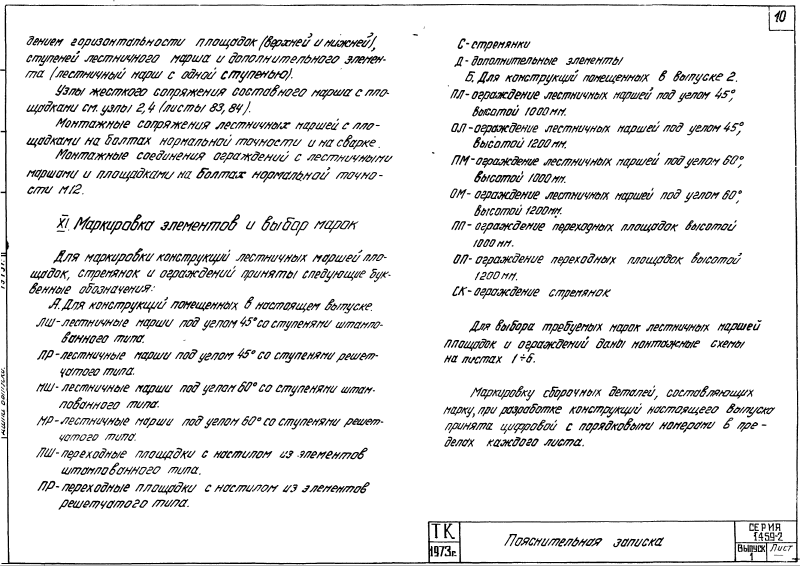 10
дением горизонтальности площадок (верхней и нижней),
ступеней лестничного марша и дополнительного элемен-
та (лестничный марш с одной ступенью).
Узлы жесткого сопряжения составного марша с пло-
щадками см. узлы 2,4 (листы 83, 84).
Монтажные сопряжения лестничных маршей с пло-
щадками на болтах нормальной точности и на сварке.
Монтажные соединения ограждений с лестничными
маршами и площадками на болтах нормальной точно-
сти М12.
XI. Маркировка элементов и выбор марок
Для маркировки конструкций лестничных маршей пло-
щадок, стремянок и ограждений приняты следующие бук-
венные обозначения:
А. Для конструкций помещенных в настоящем выпуске.
ЛШ-лестничные марши под углом 45° со ступенями штампо-
ванного типа.
ЛР-лестничные марши под углом 45° со ступенями решет-
чатого типа.
МШ-лестничные марши под углом 60° со ступенями штам-
пованного типа.
МР-лестничные марши под углом 60° со ступенями решет-
чатого типа.
ПШ-переходные площадки с настилом из элементов
штампованного типа.
ПР-переходные площадки с настилом из элементов
решетчатого типа.
С-стремянки
Д-дополнительные элементы
Б. Для конструкций помещенных в выпуске 2.
ПЛ-ограждение лестничных маршей под углом 45°,
высотой 1000 мм.
ОЛ-ограждение лестничных маршей под углом 45°,
высотой 1200 мм.
ПМ-ограждение лестничных маршей под углом 60°,
высотой 1000 мм.
ОМ-ограждение лестничных маршей под углом 60°,
высотой 1200 мм.
ПП-ограждение переходных площадок высотой
1000 мм.
ОП-ограждение переходных площадок высотой
1200 мм.
СК-ограждение стремянок
Для выбора требуемых марок лестничных маршей
площадок и ограждений даны монтажные схемы
на листах 1÷6.
Маркировку сборочных деталей, составляющих
марку, при разработке конструкций настоящего выпуска
принята цифровой с порядковыми номерами в пре-
делах каждого листа.
ТК
1973г.
Пояснительная записка
СЕРИЯ
1.459-2
Выпуск
1
Лист
—